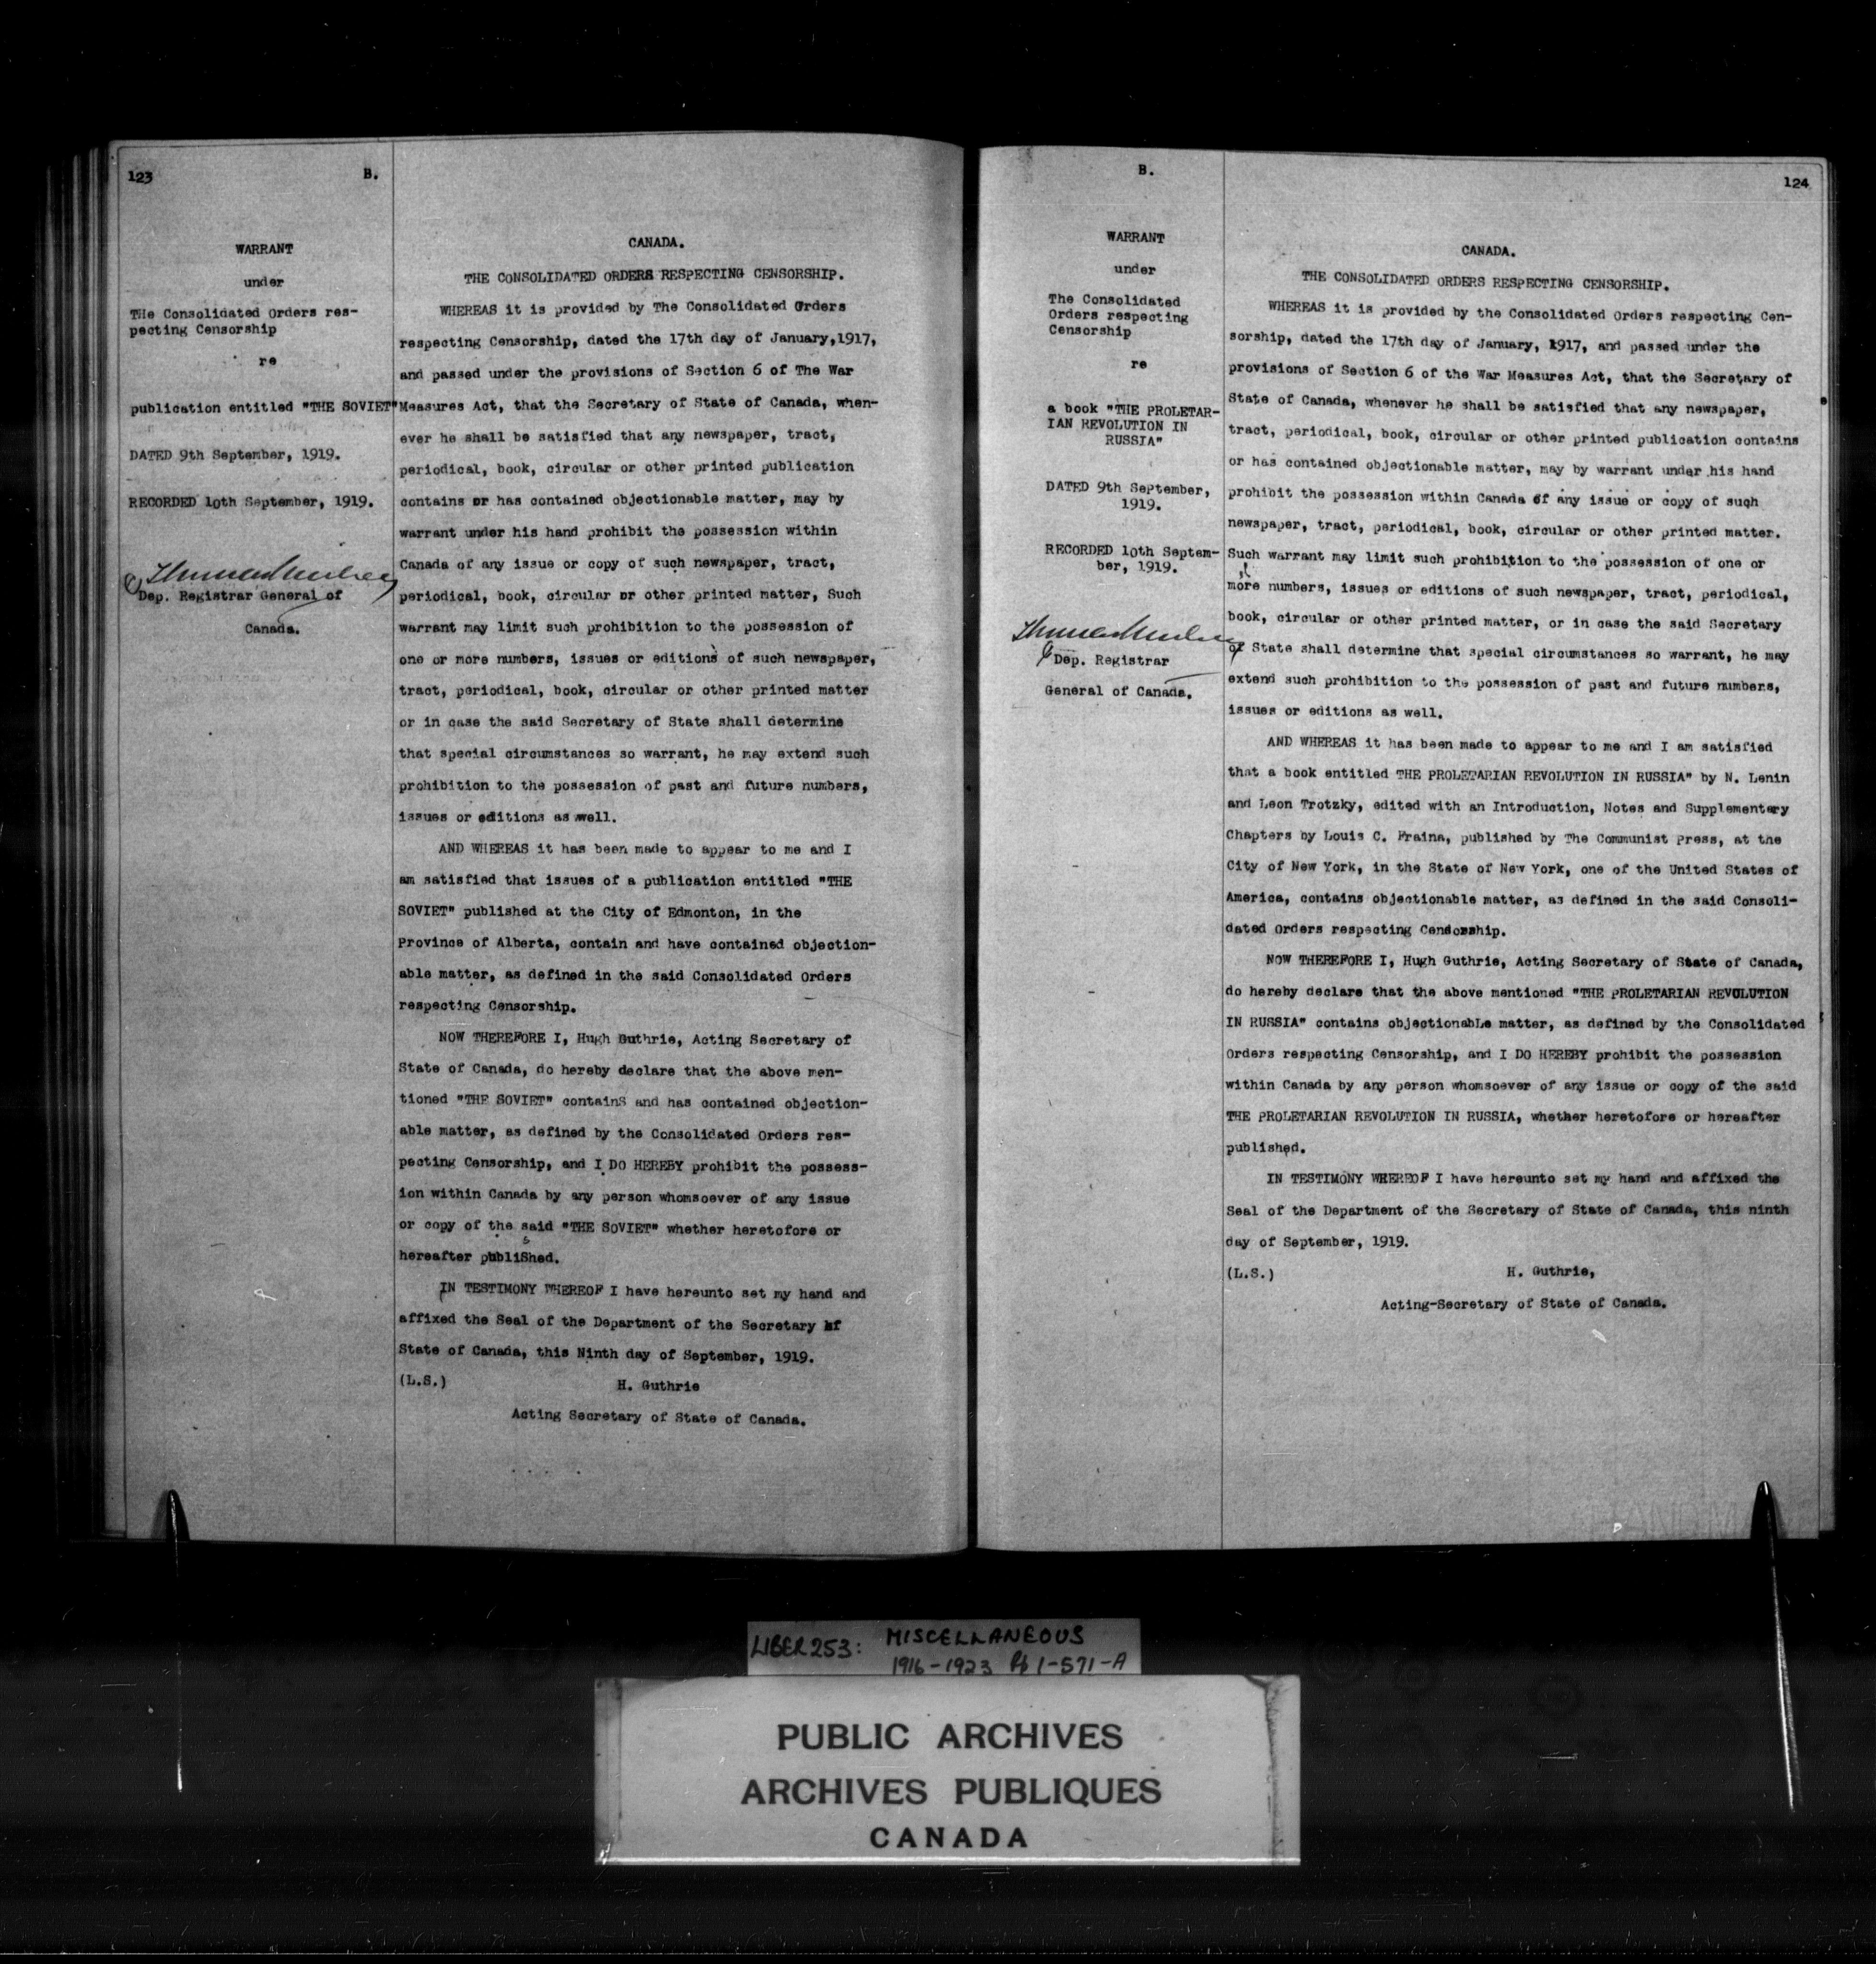 123
B.
WARRANT
under
THe Consolidated Orders res-
pecting Censorship
re
publication entitled "THE SOVIET"
DATED 9th September, 1919.
RECORDED 10th September, 1919.
Dep. Registrar General of
Canada.
CANADA.
THE CONSOLIDATED ORDERS RESPECTING CENSORSHIP.
WHEREAS it is provided by The Consolidated Orders
respecting Censorship, dated the 17th day of January,1917,
and passed under the provisions of Section 6 of The War
Measures Act, that the Secretary of State of Canada, when-
ever he shall be satisfied that any newspaper, tract,
periodical, book, circular or other printed publication
contains or has contained objectionable matter, may by
warrant under his hand prohibit the possession within
Canada of any issue or copy of such newspaper, tract,
periodical, book, circular or other printed matter, Such
warrant may limit such prohibition to the possession of
one or more numbers, issues or editions of such newspaper,
tract, periodical, book, circular or other printed matter
or in case the said Secretary of State shall determine
that special circumstances so warrant, he may extend such
prohibition to the possession of past and future numbers,
issues or editions as well.
AND WHEREAS it has been made to appear to me and I
am satisfied that issues of a publication entitled "THE
SOVIET" published at the City of Edmonton, in the
Province of Alberta, contain and have contained objection-
able matter, as defined in the said Consolidated Orders
respecting Censorship.
NOW THEREFORE I, Hugh Guthrie, Acting Secretary of
State of Canada, do hereby declare that the above men-
tioned "THE SOVIET" containS and has contained objection-
able matter, as defined by the Consolidated Orders res-
pecting Censorship, and I DO HEREBY prohibit the possess-
ion within Canada by any person whomsoever of any issue
or copy of the said "THE SOVIET" whether heretofore or
hereafter published.
IN TESTIMONY WHEREOF I have hereunto set my hand and
affixed the Seal of the Department of the Secretary of
State of Canada, this Ninth day of September, 1919.
(L.S.) H. Guthrie
Acting Secretary of State of Canada.
B.
124
WARRANT
under
The Consolidated
Orders respecting
Censorship
re
a book "THE PROLETAR-
IAN REVOLUTION IN
RUSSIA"
DATED 9th September,
1919.
RECORDED 10th Septem-
ber, 1919.
Dep. Registrar
General of Canada.
CANADA.
THE CONSOLIDATED ORDERS RESPECTING CENSORSHIP.
WHEREAS it is provided by the Consolidated Orders respecting Cen-
sorship, dated the 17th day of January, 1917, and passed under the
provisions of Section 6 of the War Measures Act, that the Secretary of
State of Canada, whenever he shall be satisfied that any newspaper,
tract, periodical, book, circular or other printed publication contains
or has contained objectionable matter, may by warrant under his hand
prohibit the possession within Canada of any issue or copy of such
newspaper, tract, periodical, book, circular or other printed matter.
Such warrant may limit such prohibition to the possession of one or
more numbers, issues or editions of such newspaper, tract, periodical,
book, circular or other printed matter, or in case the said Secretary
of State shall determine that special circumstances so warrant, he may
extend such prohibition to the possession of past and future numbers,
issues or editions as well.
AND WHEREAS it has been made to appear to me and I am satisfied
that a book entitled THE PROLETARIAN REVOLUTION IN RUSSIA" by N. Lenin
and Leon Trotzky, edited with an Introduction, Notes and Supplementary
Chapters by Louis C. Fraina, published by The Communist Press, at the
City of New York, in the State of New York, one of the United States of
America, contains objectionable matter, as defined in the said Consoli-
dated Orders respecting Censorship.
NOW THEREFORE I, Hugh Guthrie, Acting Secretary of State of Canada,
do hereby declare that the above mentioned "THE PROLETARIAN REVOLUTION
IN RUSSIA" contains objectionabLe matter, as defined by the Consolidated
Orders respecting Censorship, and I DO HEREBY prohibit the possession
within Canada by any person whomsoever of any issue or copy of the said
THE PROLETARIAN REVOLUTION IN RUSSIA, whether heretofore or hereafter
published.
IN TESTIMONY WHEREOF I have hereunto set my hand and affixed the
Seal of the Department of the Secretary of State of Canada, this ninth
day of September, 1919.
(L.S.) H. Guthrie,
Acting-Secretary of State of Canada.
LIBER 253: MISCELLANEOUS
1916-1923 Pp 1-571-A
PUBLIC ARCHIVES
ARCHIVES PUBLIQUES
CANADA